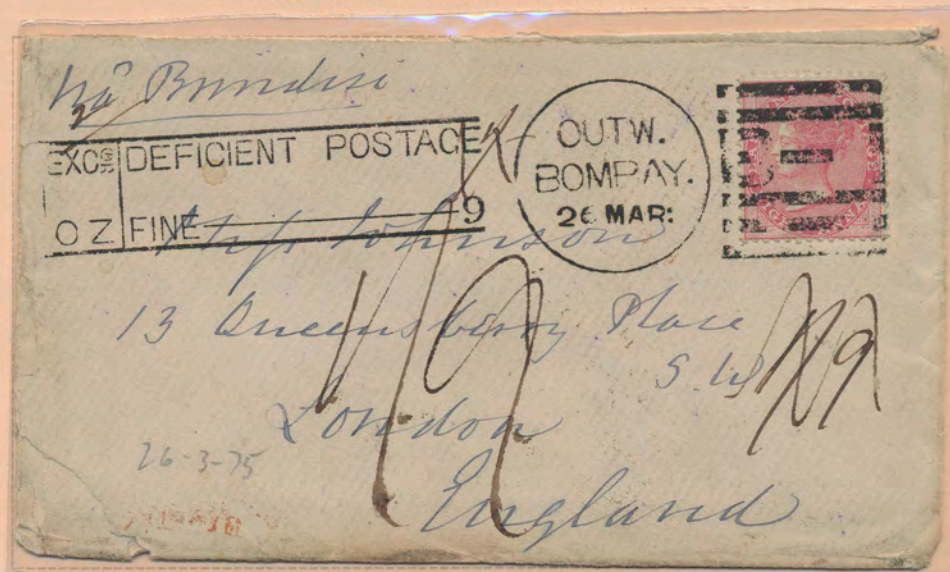 Via Brindisi
EXCG DEFICIENT POSTAGE
OZ FINE 9
OUTW.
BOMBAY.
26 MAR:
B
Miss Johnson
13 Queensberry Place
S W
London
England
1/9
26-3-75